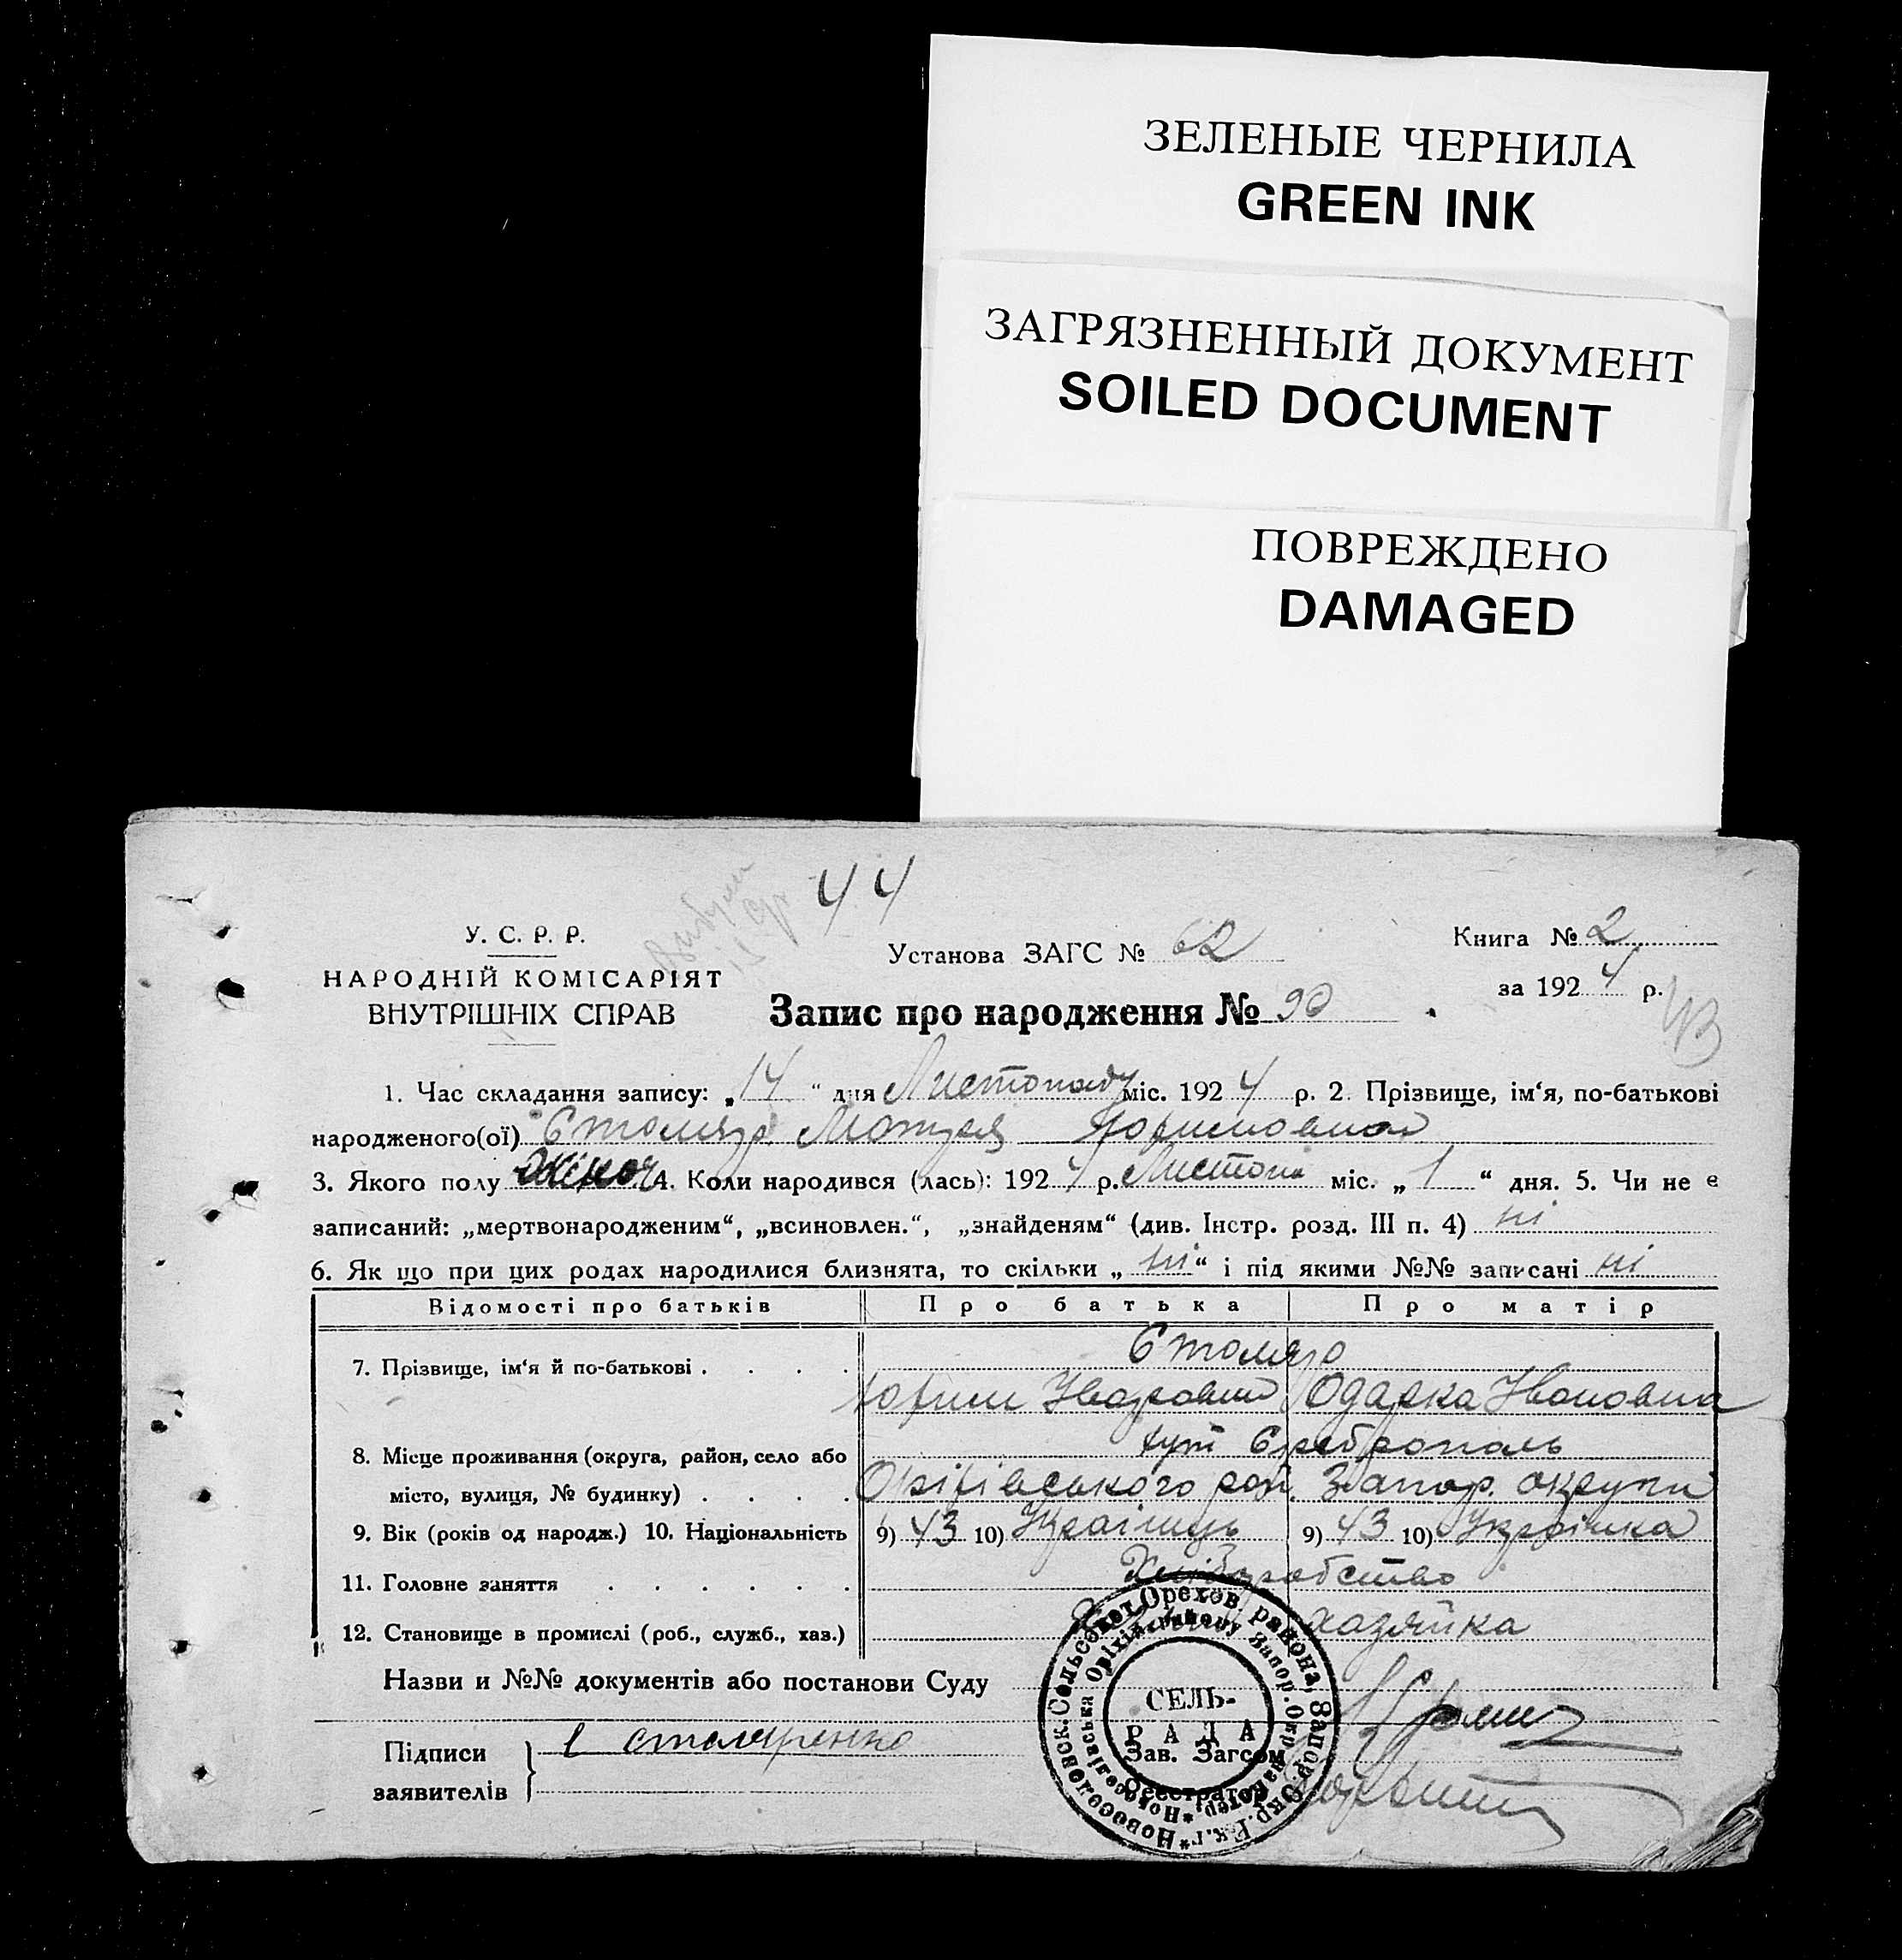 ЗЕЛЕНЫЕ ЧЕРНИЛА
GREEN INK
ЗАГРЯЗНЕННЫЙ ДОКУМЕНТ
SOILED DOCUMENT
ПОВРЕЖДЕНО
DAMAGED
44
У. С. Р. Р.
НАРОДНІЙ КОМІСАРІЯТ
ВНУТРІШНІХ СПРАВ
Установа ЗАГС № 62
Книга № 2
за 1924 р.
Запис про народження № 90
1. Час складання запису: „14“ дня Листопаду міс. 1924 р. 2. Прізвище, ім‘я, по-батькові
народженого(ої) Столяр Мотря
3. Якого полу жіноч 4. Коли народився (лась): 1924 р. Листопа міс. „1“ дня. 5. Чи не є
записаний: „мертвонародженим“, „всиновлен.“, „знайденям“ (див. Інстр. розд. III п. 4) ні
6. Як що при цих родах народилися близнята, то скільки „ні“ і під якими №№ записані ні
Відомості про батьків Про батька Про матір
Столяр
7. Прізвище, ім‘я й по-батькові . . . .
Одарка Ивановна
8. Місце проживання (округа, район, село або
хут Среброполь
місто, вулиця, № будинку) . . . . Оріхівського рай. Запор. округи
9. Вік (років од народж.) 10. Національність 9) 43 10) Українець 9) 43 10) Українка
11. Головне заняття . . . . . . Хліборобство
12. Становище в промислі (роб., служб., хаз.) хазяйка
Назви и №№ документів або постанови Суду
Підписи
заявителів
столяренко
СЕЛЬ-
РАДА
Зав. Загсом
Реєстратор
Новосёловск. Сельсовет Орехов. района, Запор. Окр.